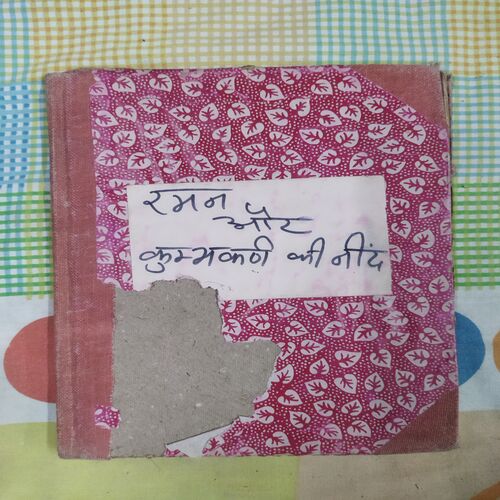 रमन
और
कुम्भकर्ण की नींद